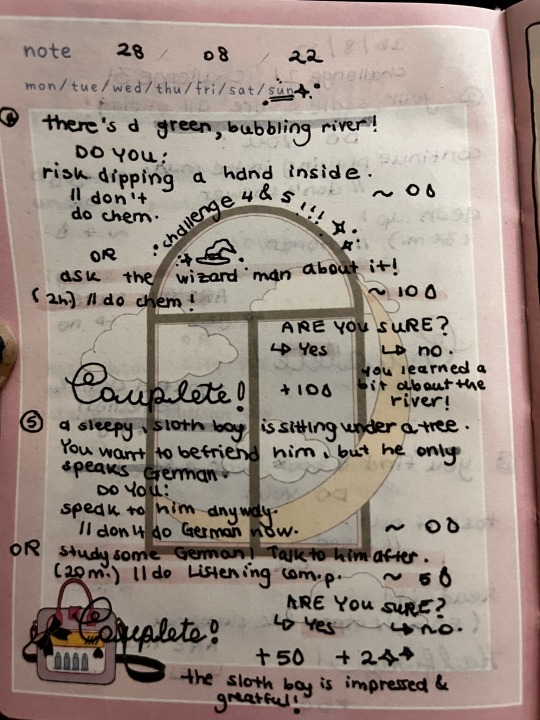 note 28 / 08 / 22
mon/tue/wed/thu/fri/sat/sun
④ there's a green, bubbling river!
DO YOU:
risk dipping a hand inside.
// don't ~ 0
do chem.
challenge 4 & 5 !!!
OR
ask the wizard man about it!
(2h) // do chem! ~ 10
ARE YOU SURE?
↳ Yes ↳ no.
+10
you learned a
bit about the
river!
Complete!
⑤ a sleepy, sloth boy is sitting under a tree.
You want to befriend him, but he only
speaks German.
DO YOU:
speak to him anyway.
// don't do German now. ~ 0
OR study some German! Talk to him after.
(20m.) // do Listening comp. ~ 5
ARE YOU SURE?
↳ Yes ↳ no.
Complete!
+50 + 2
the sloth boy is impressed &
greatful!